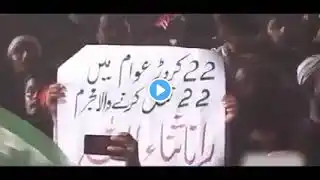 22 کروڑ عوام میں
22 قتل کرنے والا مجرم
رانا ثناء اللہ